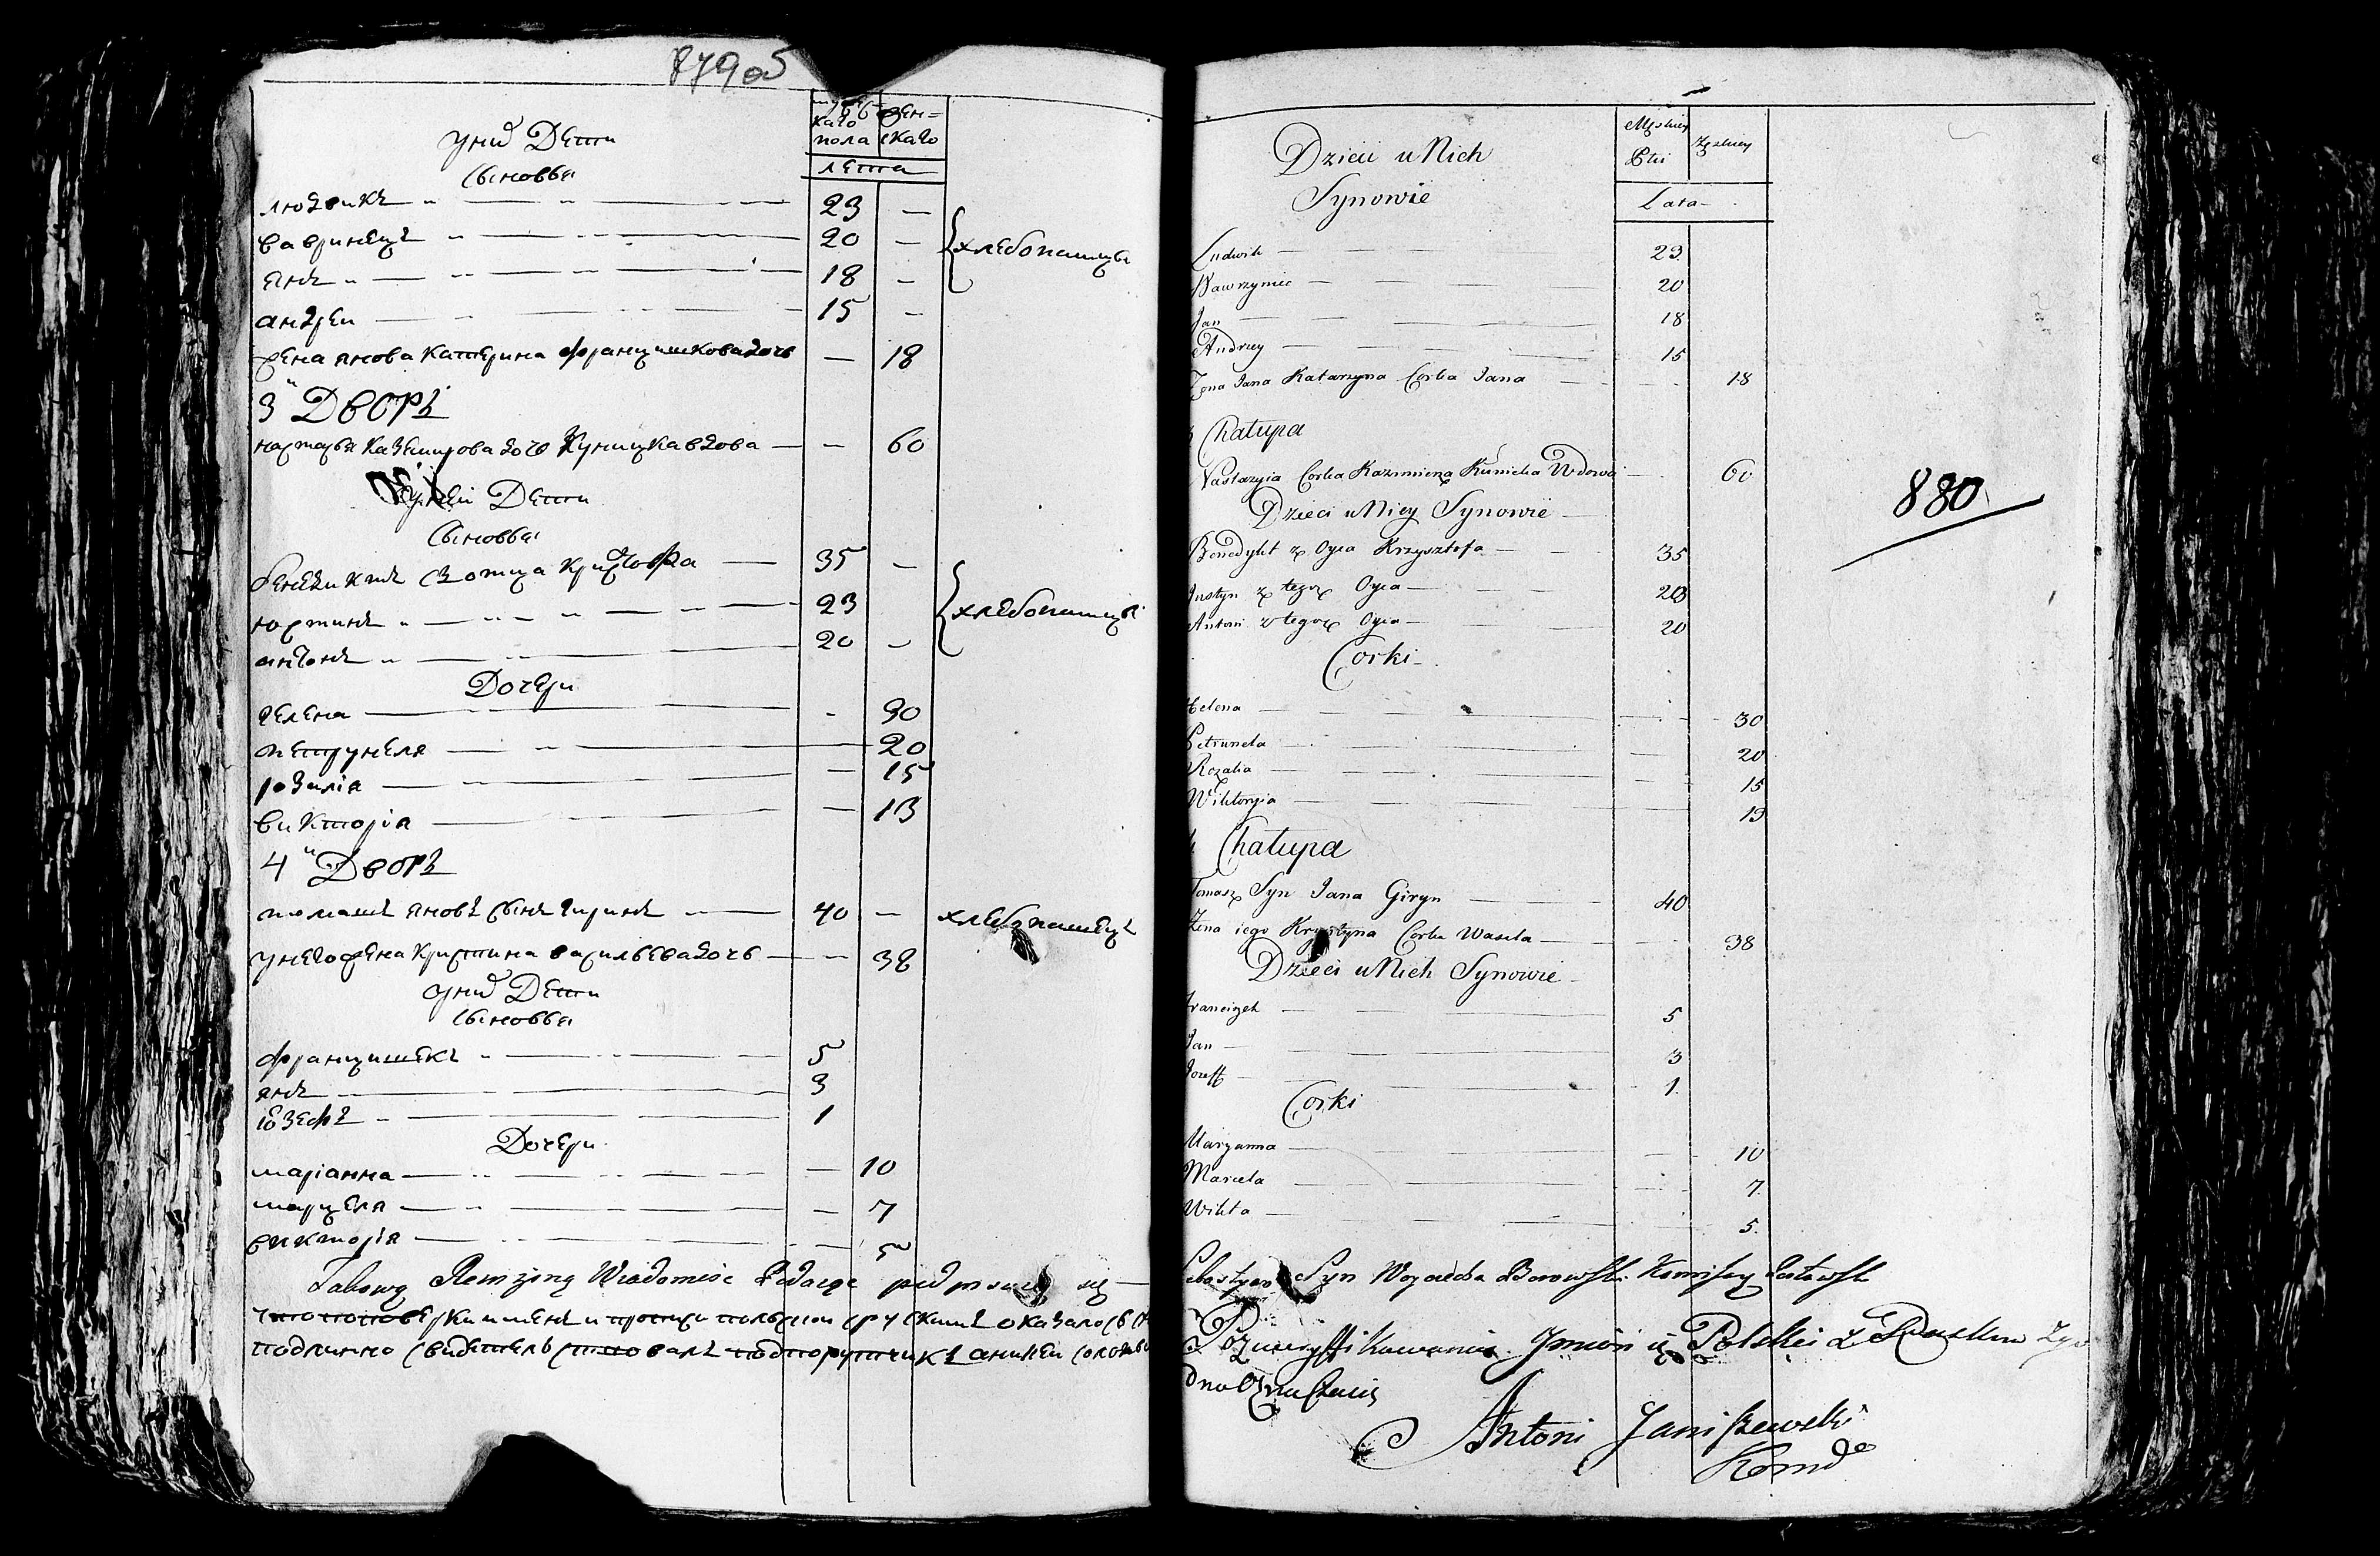 879 об
мужескаго пола женскаго
лета
у них Дети
Сыновья
Людвикъ 23 —
Вавринецъ 20 — хлебопашцы
Янъ 18 —
Андрей 15 —
жена янова Катерина францишкова дочь — 18
3й Дворъ
настазыя Казимирова дочь Куницка вдова — 60
у ней Дети
Сыновья
бенедиктъ с отца Криштофа 35 —
юстинъ 23 хлебопашцы
антонъ 20 —
Дочери
гелена - 30
петрунеля 20
розалія — 15
викторія — 13
4й Дворъ
томашъ яновъ сынъ гиринъ 40 — хлебопашецъ
у него жена Кристина васильева дочь — 38
у них Дети
Сыновья
францишекъ 5
янъ 3
іозефъ 1
Дочери
маріанна — 10
марцеля — 7
викторія — 5
Takową Rewizyiną Wiadomość Podaiąc podpisuię się —
что по поверки имен и противу польской с рускимъ оказалось
подлинно свидетельствовалъ подпорутчикъ аникей
Dzieci u Nich
Synowie
Męskiey Płci Żęskiey
Lata
Ludwik 23
Wawrzyniec 20
Jan 18
Andrzey 15
Żona Jana Katarzyna Corka Jana 18
3 Chałupa
Nastazyia Corka Kazimierza Kunicka Wdowa 60
Dzieci u Niey Synowie
Benedykt z Oyca Krzysztofa 35
Justyn z tegoż Oyca 23
Antoni z tegoż Oyca 20
Corki
Helena 30
Petrunela 20
Rozalia 15
Wiktoryia 13
4 Chałupa
Tomasz Syn Jana Giryn 40
Żona iego Krystyna Corka Wasila 38
Dzieci u Nich Synowie
Franciszek 5
Jan 3
Jozeff 1
Corki
Maryanna 10
Marcela 7
Wikta 5
880
Sebastyan Syn Woyciecha Borowski
Zweryffikowaniu Jmion iż Polskie z Ruskim
Antoni Janiszewski